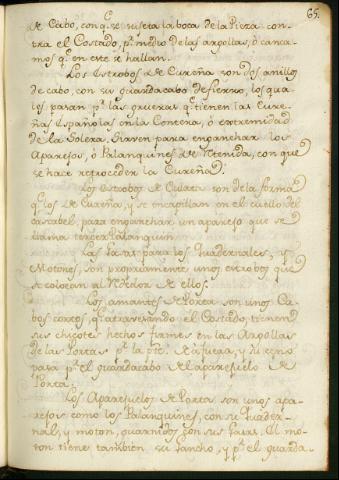 65.
de Cabo, con q.e se sujeta la boca de la Pieza con-
tra el Costado, p.r medio de las argollas, ò cánca-
mos q.e en este se hallan.
Los Estrobos de Cureña son dos anillos
de cabo, con su guardacabo de fierro, los qua-
les pasan p.r las gruesas q.e tienen las Cure-
ñas Españolas en la Contera, ò extremidad
de la Solera. Sirven para enganchar los
Aparejos, ò Palanquines de Retenida, con que
se hace retroceder la Cureña.
Los Estrobos de Culata son de la forma
q.e los de Cureña, y se encapillan en el cuello del
cascabel, para enganchar un aparejo que se
llama tercer Palanquin.
Las Gazas para los Quadernales, y
Motones, son propriamente unos estrobos que
se colocan al rededor de ellos.
Los amantes de Porta son unos Ca-
bos cortos, q.e atravesando el Costado, tienen
sus chicotes hechos firmes en las Argollas
de las Portas p.r la p.te de afuera, y su seno
para p.r el guardacabo del aparejuelo de
Porta.
Los Aparejuelos de Porta son unos apa-
rejos como los Palanquines, con su quader-
nal, y moton, guarnidos con sus Gazas. El mo-
ton tiene tambien su Gancho, y p.r el guarda-